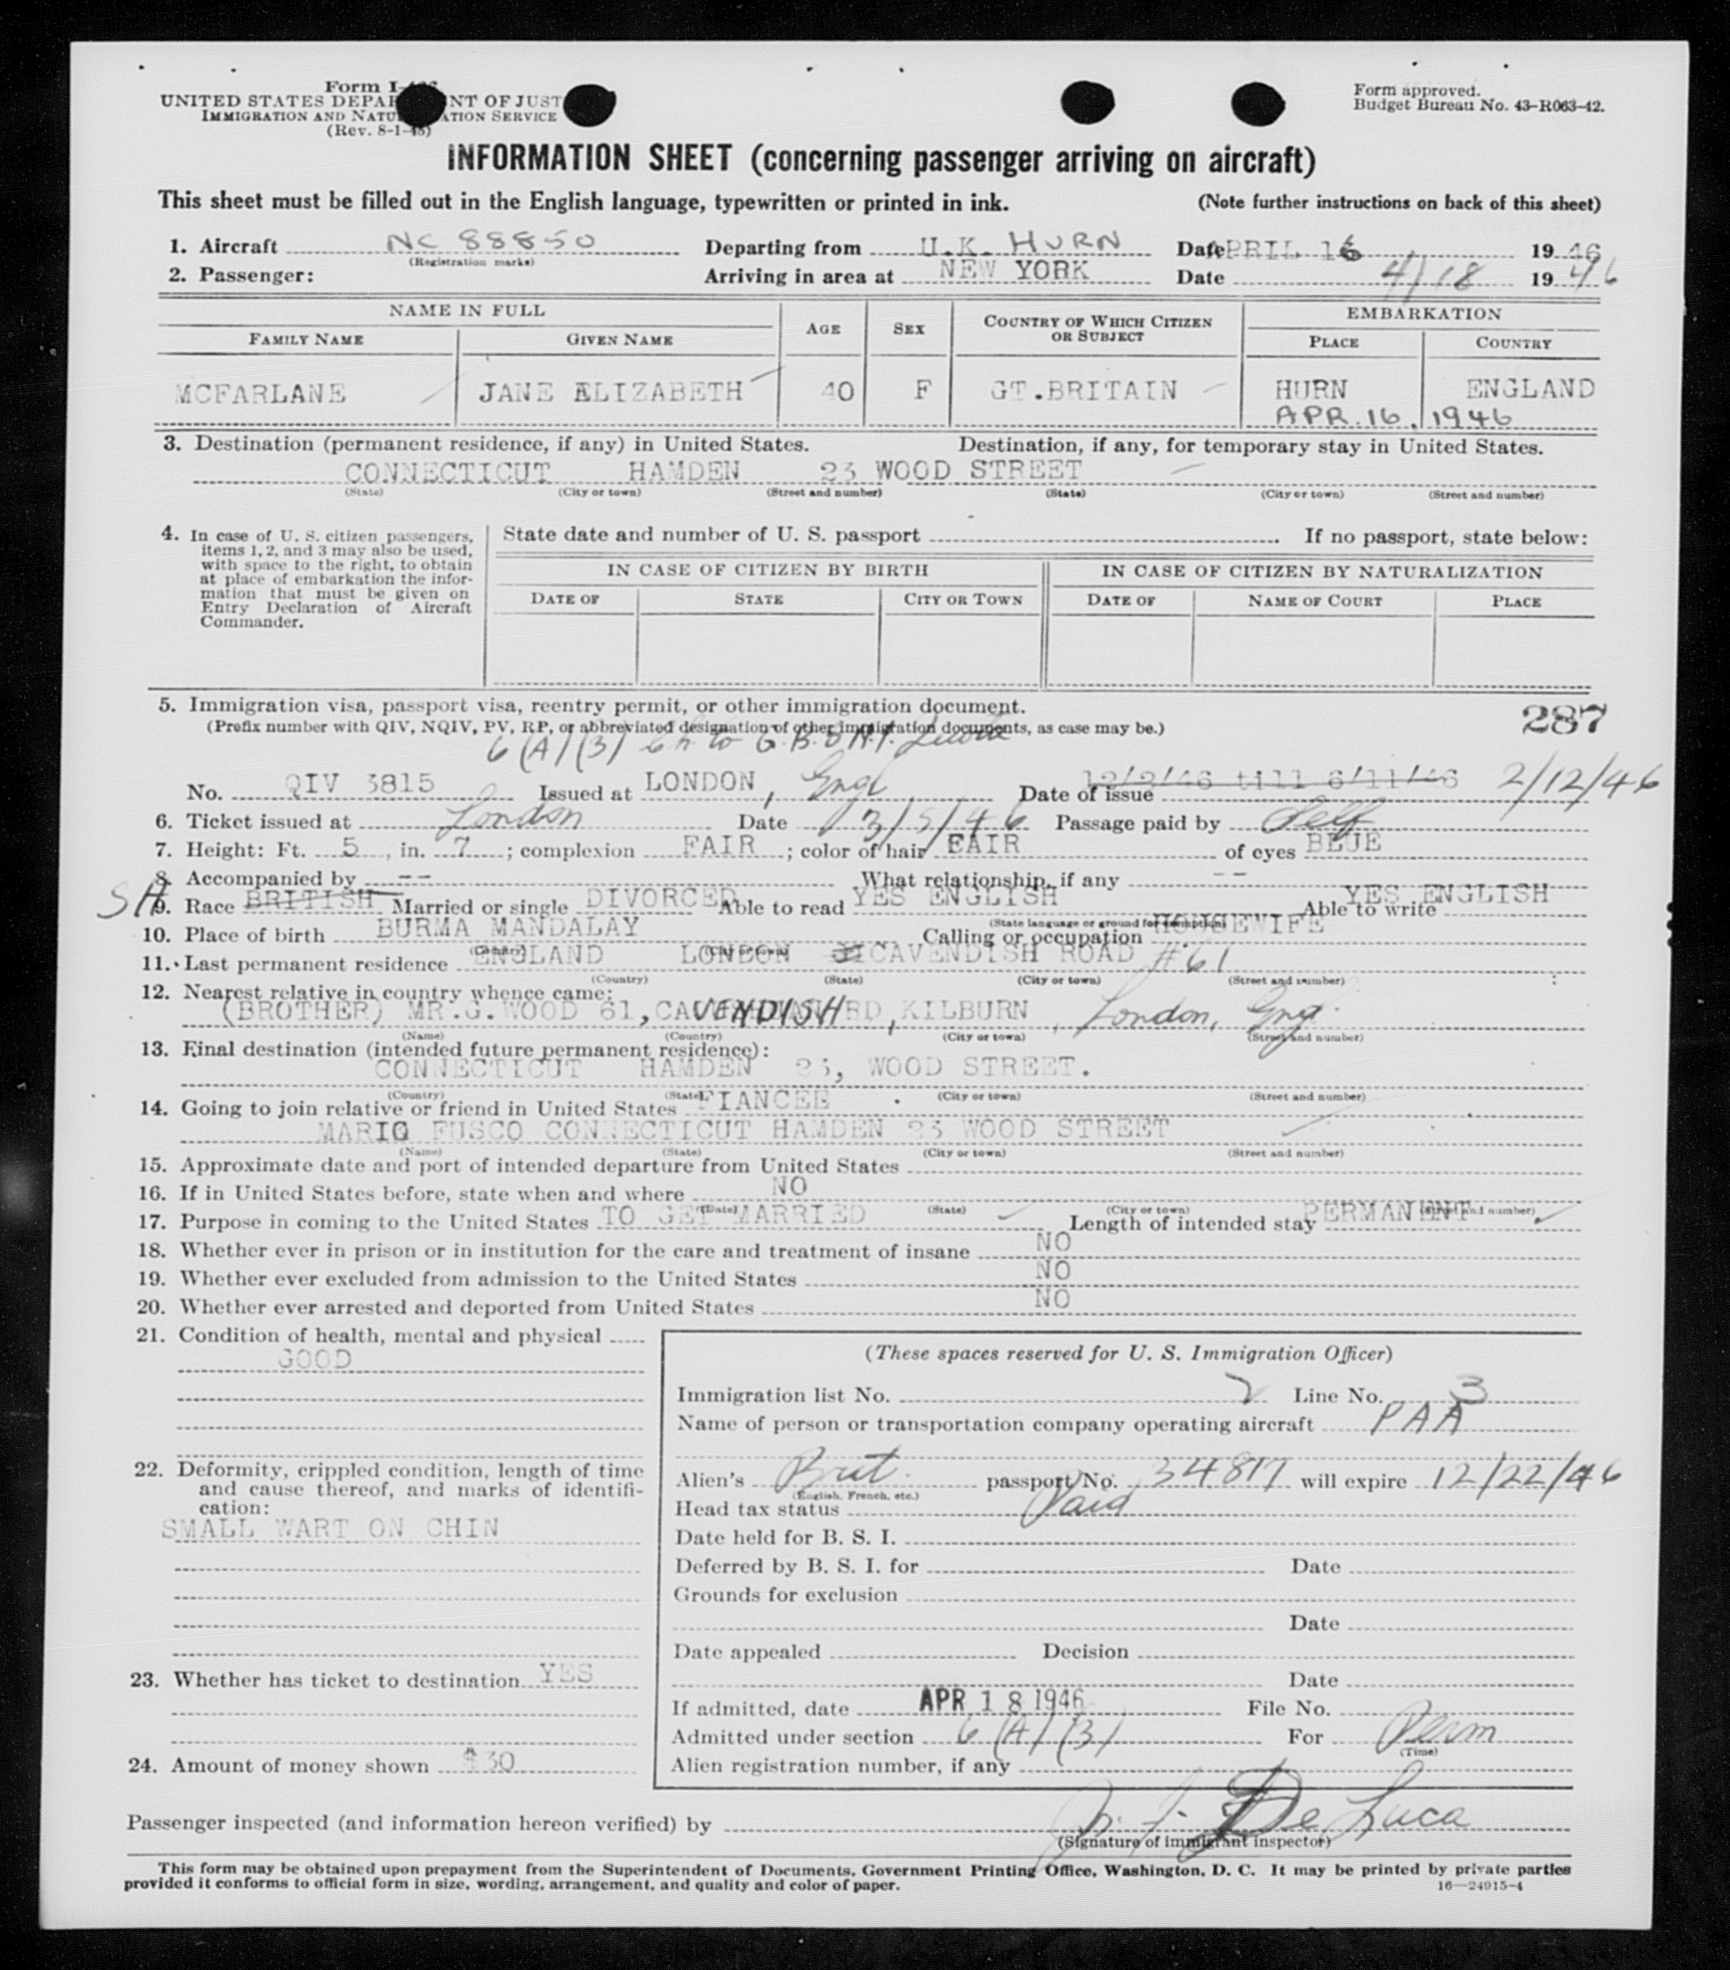 Form I-
UNITED STATES DEPA NT OF JUST
IMMIGRATION AND NATU ATION SERVICE
(Rev. 8-1-45)
Form approved.
Budget Bureau No. 43-R063-42.
INFORMATION SHEET (concerning passenger arriving on aircraft)
This sheet must be filled out in the English language, typewritten or printed in ink. (Note further instructions on back of this sheet)
1. Aircraft NC 88850 Departing from U.K. HURN Date APRIL 16 19 46
(Registration marks)
2. Passenger: Arriving in area at NEW YORK Date 4/18 19 46
NAME IN FULL AGE SEX COUNTRY OF WHICH CITIZEN OR SUBJECT EMBARKATION
FAMILY NAME GIVEN NAME PLACE COUNTRY
MCFARLANE JANE ELIZABETH 40 F GT.BRITAIN HURN ENGLAND
APR. 16, 1946
3. Destination (permanent residence, if any) in United States. Destination, if any, for temporary stay in United States.
CONNECTICUT HAMDEN 23 WOOD STREET
(State) (City or town) (Street and number) (State) (City or town) (Street and number)
4. In case of U. S. citizen passengers, items 1, 2, and 3 may also be used, with space to the right, to obtain at place of embarkation the information that must be given on Entry Declaration of Aircraft Commander.
State date and number of U. S. passport . If no passport, state below:
IN CASE OF CITIZEN BY BIRTH IN CASE OF CITIZEN BY NATURALIZATION
DATE OF STATE CITY OR TOWN DATE OF NAME OF COURT PLACE
5. Immigration visa, passport visa, reentry permit, or other immigration document.
(Prefix number with QIV, NQIV, PV, RP, or abbreviated designation of other immigration documents, as case may be.) 287
6 (A) (3) ch to G. B. & N.I.
No. QIV 3815 Issued at LONDON, Engl Date of issue 12/2/46 till 6/11/46 2/12/46
6. Ticket issued at London Date 3/5/46 Passage paid by Self
7. Height: Ft. 5, in. 7; complexion FAIR; color of hair FAIR of eyes BLUE
8. Accompanied by -- What relationship, if any --
SH 9. Race BRITISH Married or single DIVORCED Able to read YES ENGLISH Able to write YES ENGLISH
(State language or ground for exemption)
10. Place of birth BURMA MANDALAY Calling or occupation HOUSEWIFE
(Country) (City or town)
11. Last permanent residence ENGLAND LONDON CAVENDISH ROAD #61
(Country) (State) (City or town) (Street and number)
12. Nearest relative in country whence came:
(BROTHER) MR.G.WOOD 61, CAVENDISH RD, KILBURN, London, Engl.
(Name) (Country) (City or town) (Street and number)
13. Final destination (intended future permanent residence):
CONNECTICUT HAMDEN 23, WOOD STREET.
(Country) (State) (City or town) (Street and number)
14. Going to join relative or friend in United States FIANCEE
MARIO FUSCO CONNECTICUT HAMDEN 23 WOOD STREET
(Name) (State) (City or town) (Street and number)
15. Approximate date and port of intended departure from United States
16. If in United States before, state when and where NO
(Date) (State) (City or town) (Street and number)
17. Purpose in coming to the United States TO GET MARRIED Length of intended stay PERMANENT
18. Whether ever in prison or in institution for the care and treatment of insane NO
19. Whether ever excluded from admission to the United States NO
20. Whether ever arrested and deported from United States NO
21. Condition of health, mental and physical
GOOD
22. Deformity, crippled condition, length of time and cause thereof, and marks of identification:
SMALL WART ON CHIN
23. Whether has ticket to destination YES
24. Amount of money shown $30
(These spaces reserved for U. S. Immigration Officer)
Immigration list No. 2 Line No. 3
Name of person or transportation company operating aircraft PAA
Alien's Brit. passport No. 34817 will expire 12/22/46
(English, French, etc.)
Head tax status Paid
Date held for B. S. I.
Deferred by B. S. I. for Date
Grounds for exclusion
Date
Date appealed Decision
Date
If admitted, date APR 18 1946 File No.
Admitted under section 6 (A) (3) For Perm
(Time)
Alien registration number, if any
Passenger inspected (and information hereon verified) by De Luca
(Signature of immigrant inspector)
This form may be obtained upon prepayment from the Superintendent of Documents, Government Printing Office, Washington, D. C. It may be printed by private parties
provided it conforms to official form in size, wording, arrangement, and quality and color of paper. 16—24915-4